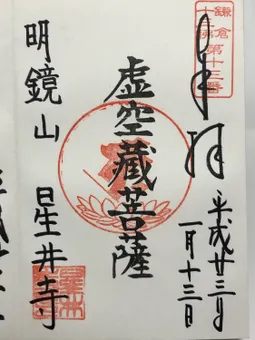 鎌倉
十三佛
第十三番
奉拝
平成廿三年
一月十三日
虚空蔵菩薩
明鏡山 星井寺